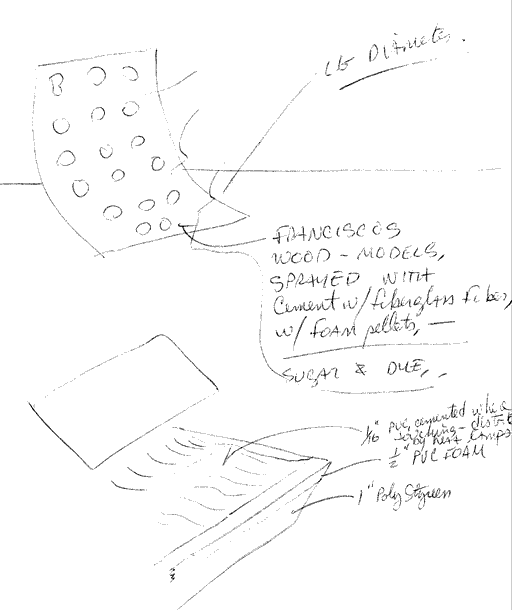 Diameter.
FRANCISCOS
WOOD - MODELS,
SPRAYED WITH
Cement w/ fiberglass fiber,
w/ FOAM pellets, —
SUGAR & DUE,
1/16" PVC, cemented
by heat lamps
1/2" PVC FOAM
1" Poly Styreen